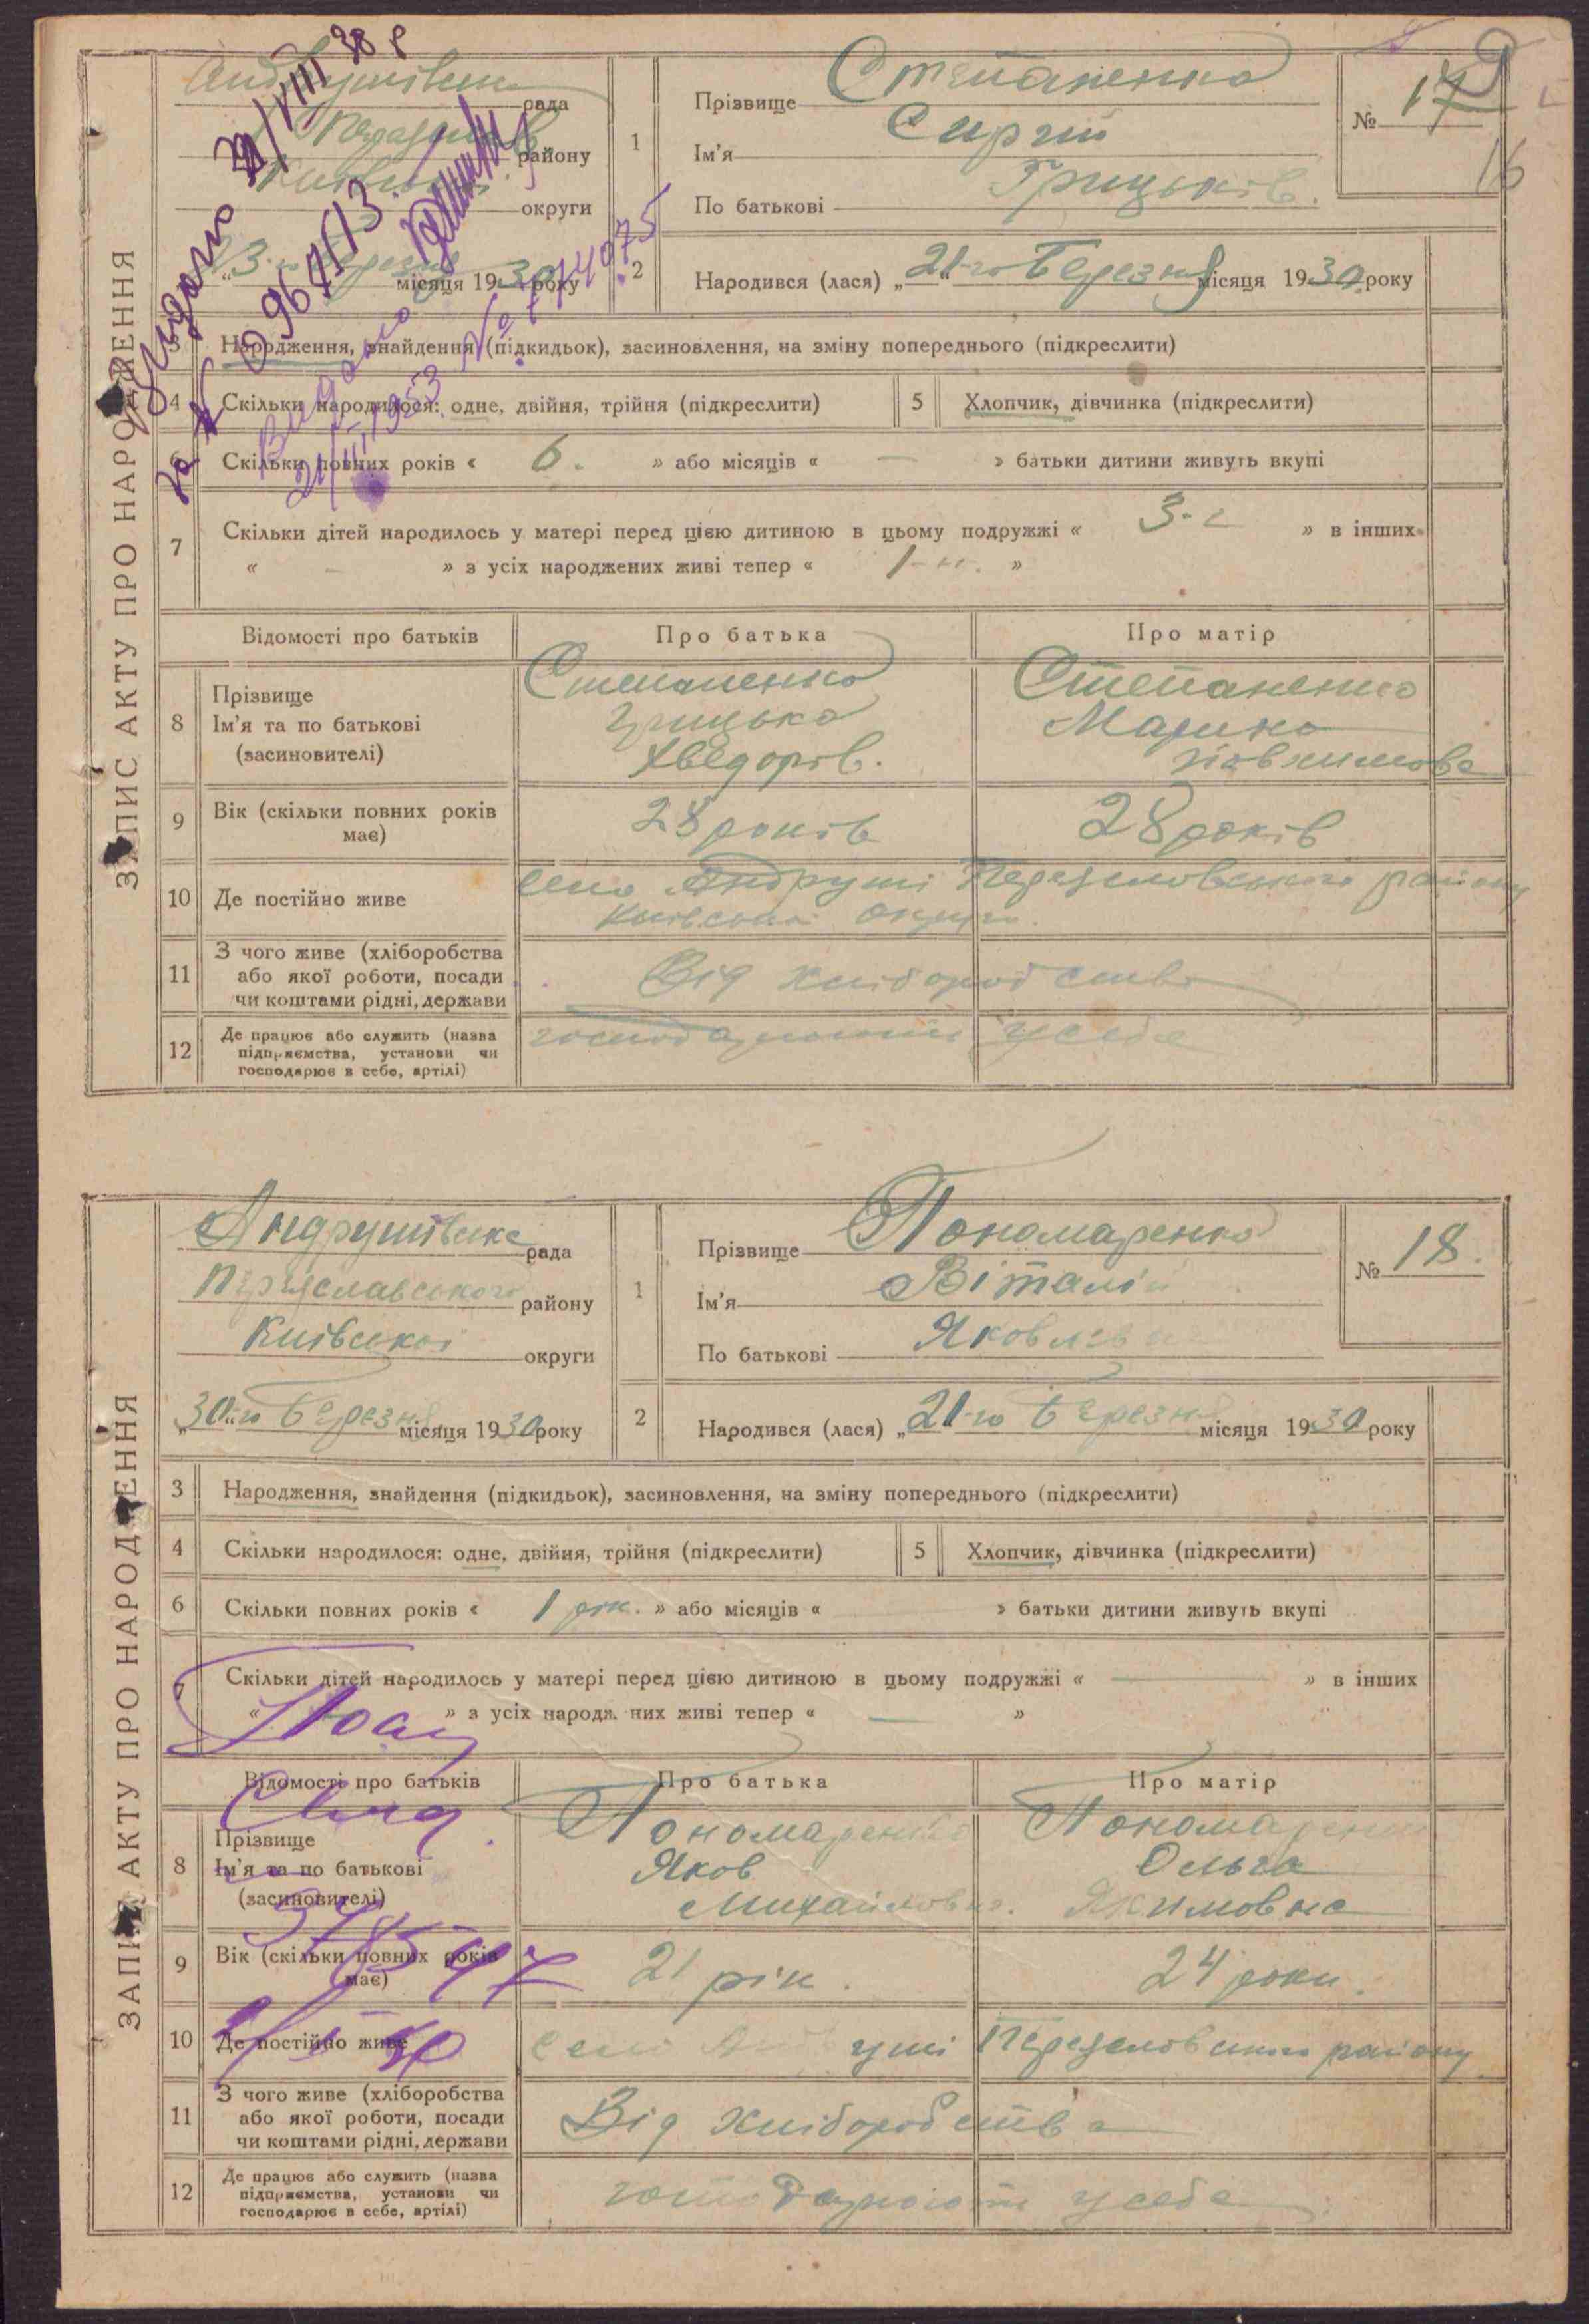 ЗАПИС АКТУ ПРО НАРОДЖЕННЯ
Андрушівська рада
району
округи
місяця 1930 року
1
Прізвище Степаненко
Ім'я Сиргій
По батькові Грицьків.
№ 17
16
2
Народився (лася) „21-го Березня місяця 1930 року
Видано 21/VIII 38 р
Видано
21/III 1953
3 Народження, знайдення (підкидьок), засиновлення, на зміну попереднього (підкреслити)
4 Скільки народилося: одне, двійня, трійня (підкреслити)
5 Хлопчик, дівчинка (підкреслити)
6 Скільки повних років « 6. » або місяців « — » батьки дитини живуть вкупі
7 Скільки дітей народилось у матері перед цією дитиною в цьому подружжі « 3-є » в інших
« – » з усіх народжених живі тепер « 1-н. »
Відомості про батьків Про батька Про матір
8 Прізвище Степаненко Степаненко
Ім'я та по батькові Грицько Марина
(засиновителі) Хведорів.
9 Вік (скільки повних років має) 28 років 28 років
10 Де постійно живе село Андруші Переяславського району
Київської округи.
11 З чого живе (хліборобства
або якої роботи, посади
чи коштами рідні, держави Від хліборобства
12 Де працює або служить (назва
підприємства, установи чи
господарює в себе, артілі) господарюють у себе
ЗАПИС АКТУ ПРО НАРОДЖЕННЯ
Андрушівська рада
Переяславського району
Київської округи
„30-го Березня місяця 1930 року
1
Прізвище Пономаренко
Ім'я Віталій
По батькові
№ 18.
2
Народився (лася) „21-го Березня місяця 1930 року
3 Народження, знайдення (підкидьок), засиновлення, на зміну попереднього (підкреслити)
4 Скільки народилося: одне, двійня, трійня (підкреслити)
5 Хлопчик, дівчинка (підкреслити)
6 Скільки повних років « 1 рік. » або місяців « » батьки дитини живуть вкупі
7 Скільки дітей народилось у матері перед цією дитиною в цьому подружжі « — » в інших
« » з усіх народж них живі тепер « — »
Відомості про батьків Про батька Про матір
8 Прізвище Пономаренко Пономаренко
Ім'я та по батькові Яков Ольга
(засиновителі) Якимовна
9 Вік (скільки повних років має) 21 рік. 24 роки.
10 Де постійно живе село Андруші Переяславського району
11 З чого живе (хліборобства
або якої роботи, посади
чи коштами рідні, держави Від хліборобства
12 Де працює або служить (назва
підприємства, установи чи
господарює в себе, артілі) господарюють у себе